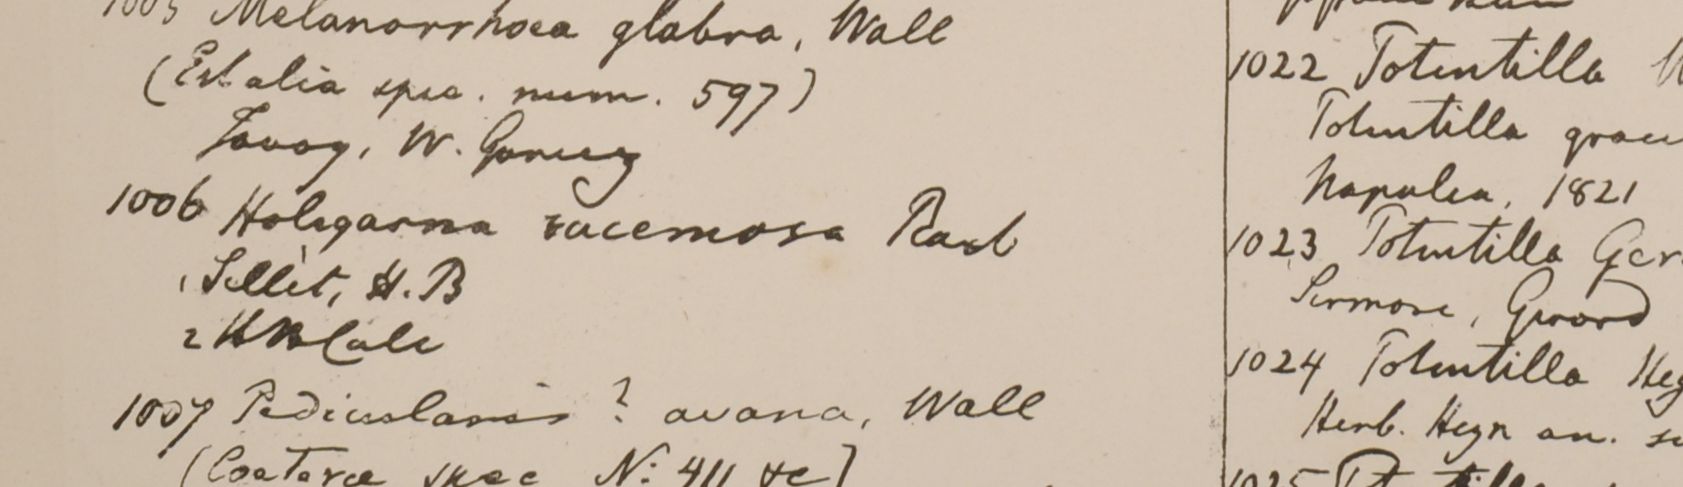 1005 Melanorrhoea glabra, Wall
(Estalia spec. num. 597)
Tavoy, W. Gomez
1006 Holigarna racemosa Roxb
1 Sillèt, H. B
2 H B Calc
1007 Pedicularis ? avana, Wall
spec N: 411 &c]
1022 Potentilla
Potentilla
Napalia, 1821
1023 Potentilla Ger
Sirmore, Gerard
1024 Potentilla
Herb. Heyn an.
1025